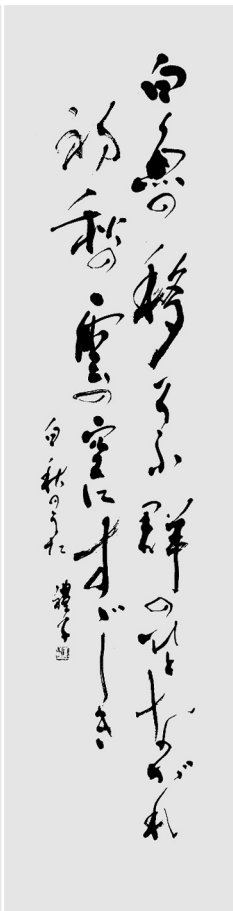 白魚の移ろふ群のひとながれ
初秋の雲の空にすがしき
白秋のうた